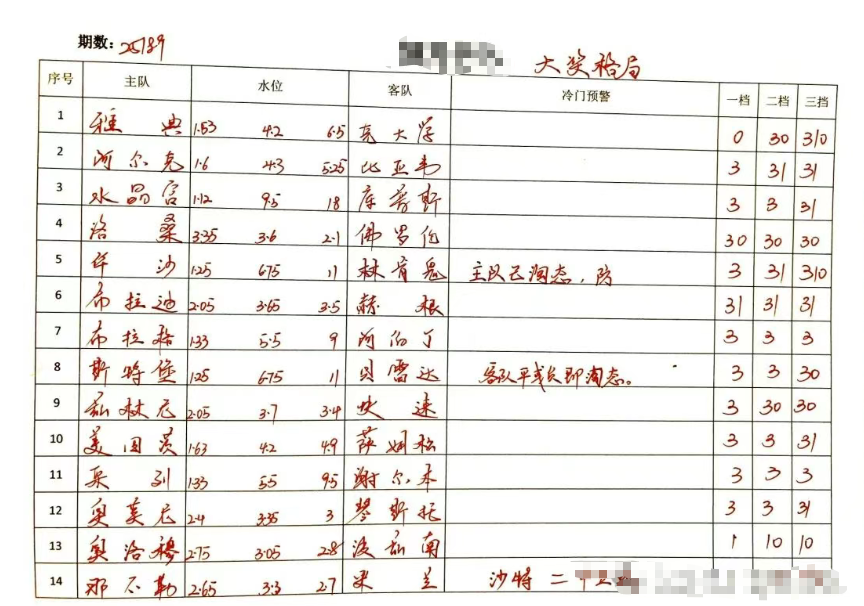 期数: 25189
大奖格局
序号 主队 水位 客队 冷门预警 一档 二档 三挡
1 雅典 1·53 4·2 6·5 克大学 0 30 310
2 阿尔克 1·6 4·3 5·25 比亚韦 3 31 31
3 水晶宫 1·12 9·5 18 库普斯 3 3 31
4 洛桑 3·35 3·6 2·1 佛罗伦 30 30 30
5 华沙 1·25 6·75 11 林肯鬼 主队已淘态，防 3 31 310
6 布拉迪 2·05 3·65 3·5 赫根 31 31 31
7 布拉格 1·33 5·5 9 阿伯丁 3 3 3
8 斯特堡 1·25 6·75 11 贝雷达 客队平或负即淘态。 3 3 30
9 甜林尼 2·05 3·7 3·4 坎速 3 30 30
10 美因茨 1·63 4·2 4·9 萨姆松 3 3 31
11 采列 1·33 5·5 9·5 谢尔本 3 3 3
12 奥莫尼 2·4 3·35 3 琴斯托 3 3 31
13 奥洛穆 2·75 3·05 2·8 波甜南 1 10 10
14 那不勒 2·65 3·3 2·7 米兰 沙特二